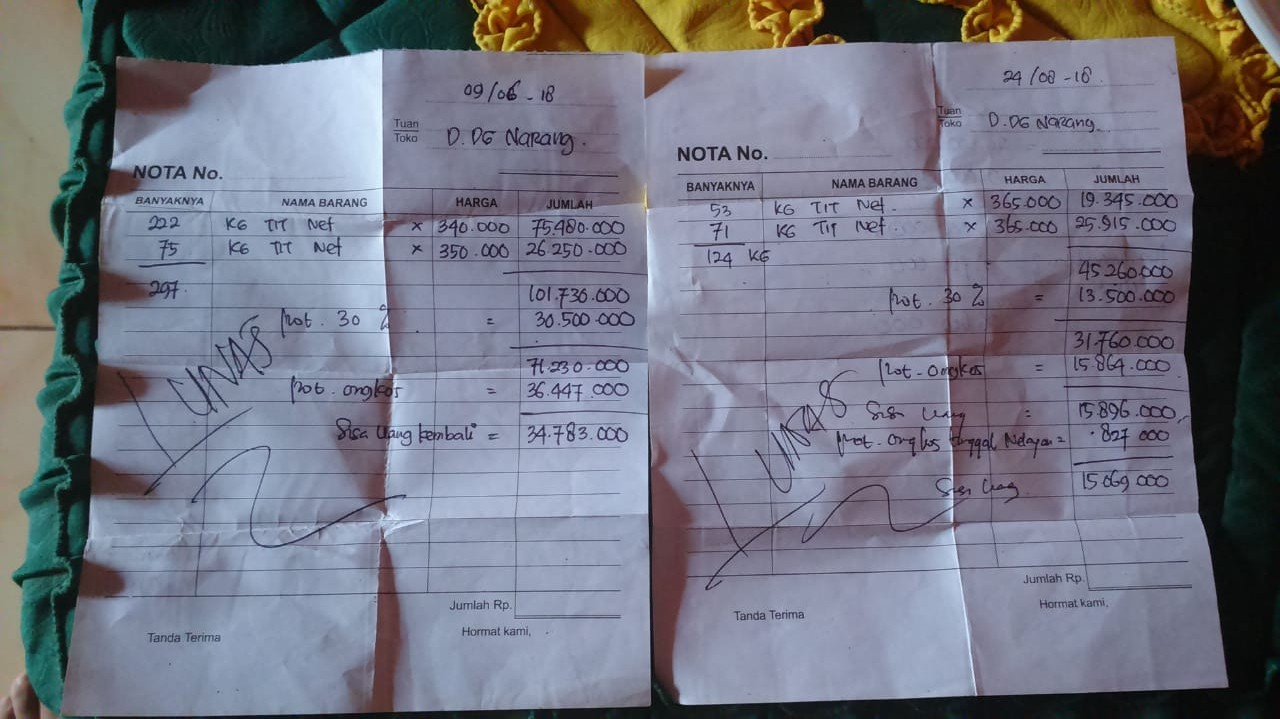 09/06-18
Tuan
Toko D.DG Narang.
NOTA No.
BANYAKNYA NAMA BARANG HARGA JUMLAH
222 KG TIT Net × 340.000 75.480.000
75 KG TIT Net × 350.000 26.250.000
297 101.730.000
pot. 30 % = 30.500.000
71.230.000
pot. ongkos = 36.447.000
Sisa Uang kembali = 34.783.000
LUNAS
Jumlah Rp.
Tanda Terima Hormat kami,
24/08-18.
Tuan
Toko D.DG Narang.
NOTA No.
BANYAKNYA NAMA BARANG HARGA JUMLAH
53 KG TIT Net. × 365.000 19.345.000
71 KG TIT Net. × 365.000 25.915.000
124 KG
45.260.000
pot. 30 % = 13.500.000
31.760.000
pot. ongkos = 15.864.000
Sisa Uang = 15.896.000
pot. ongkos tinggal Nelayan = 827 000
Sisa Uang. 15.069.000
LUNAS
Jumlah Rp.
Tanda Terima Hormat kami,